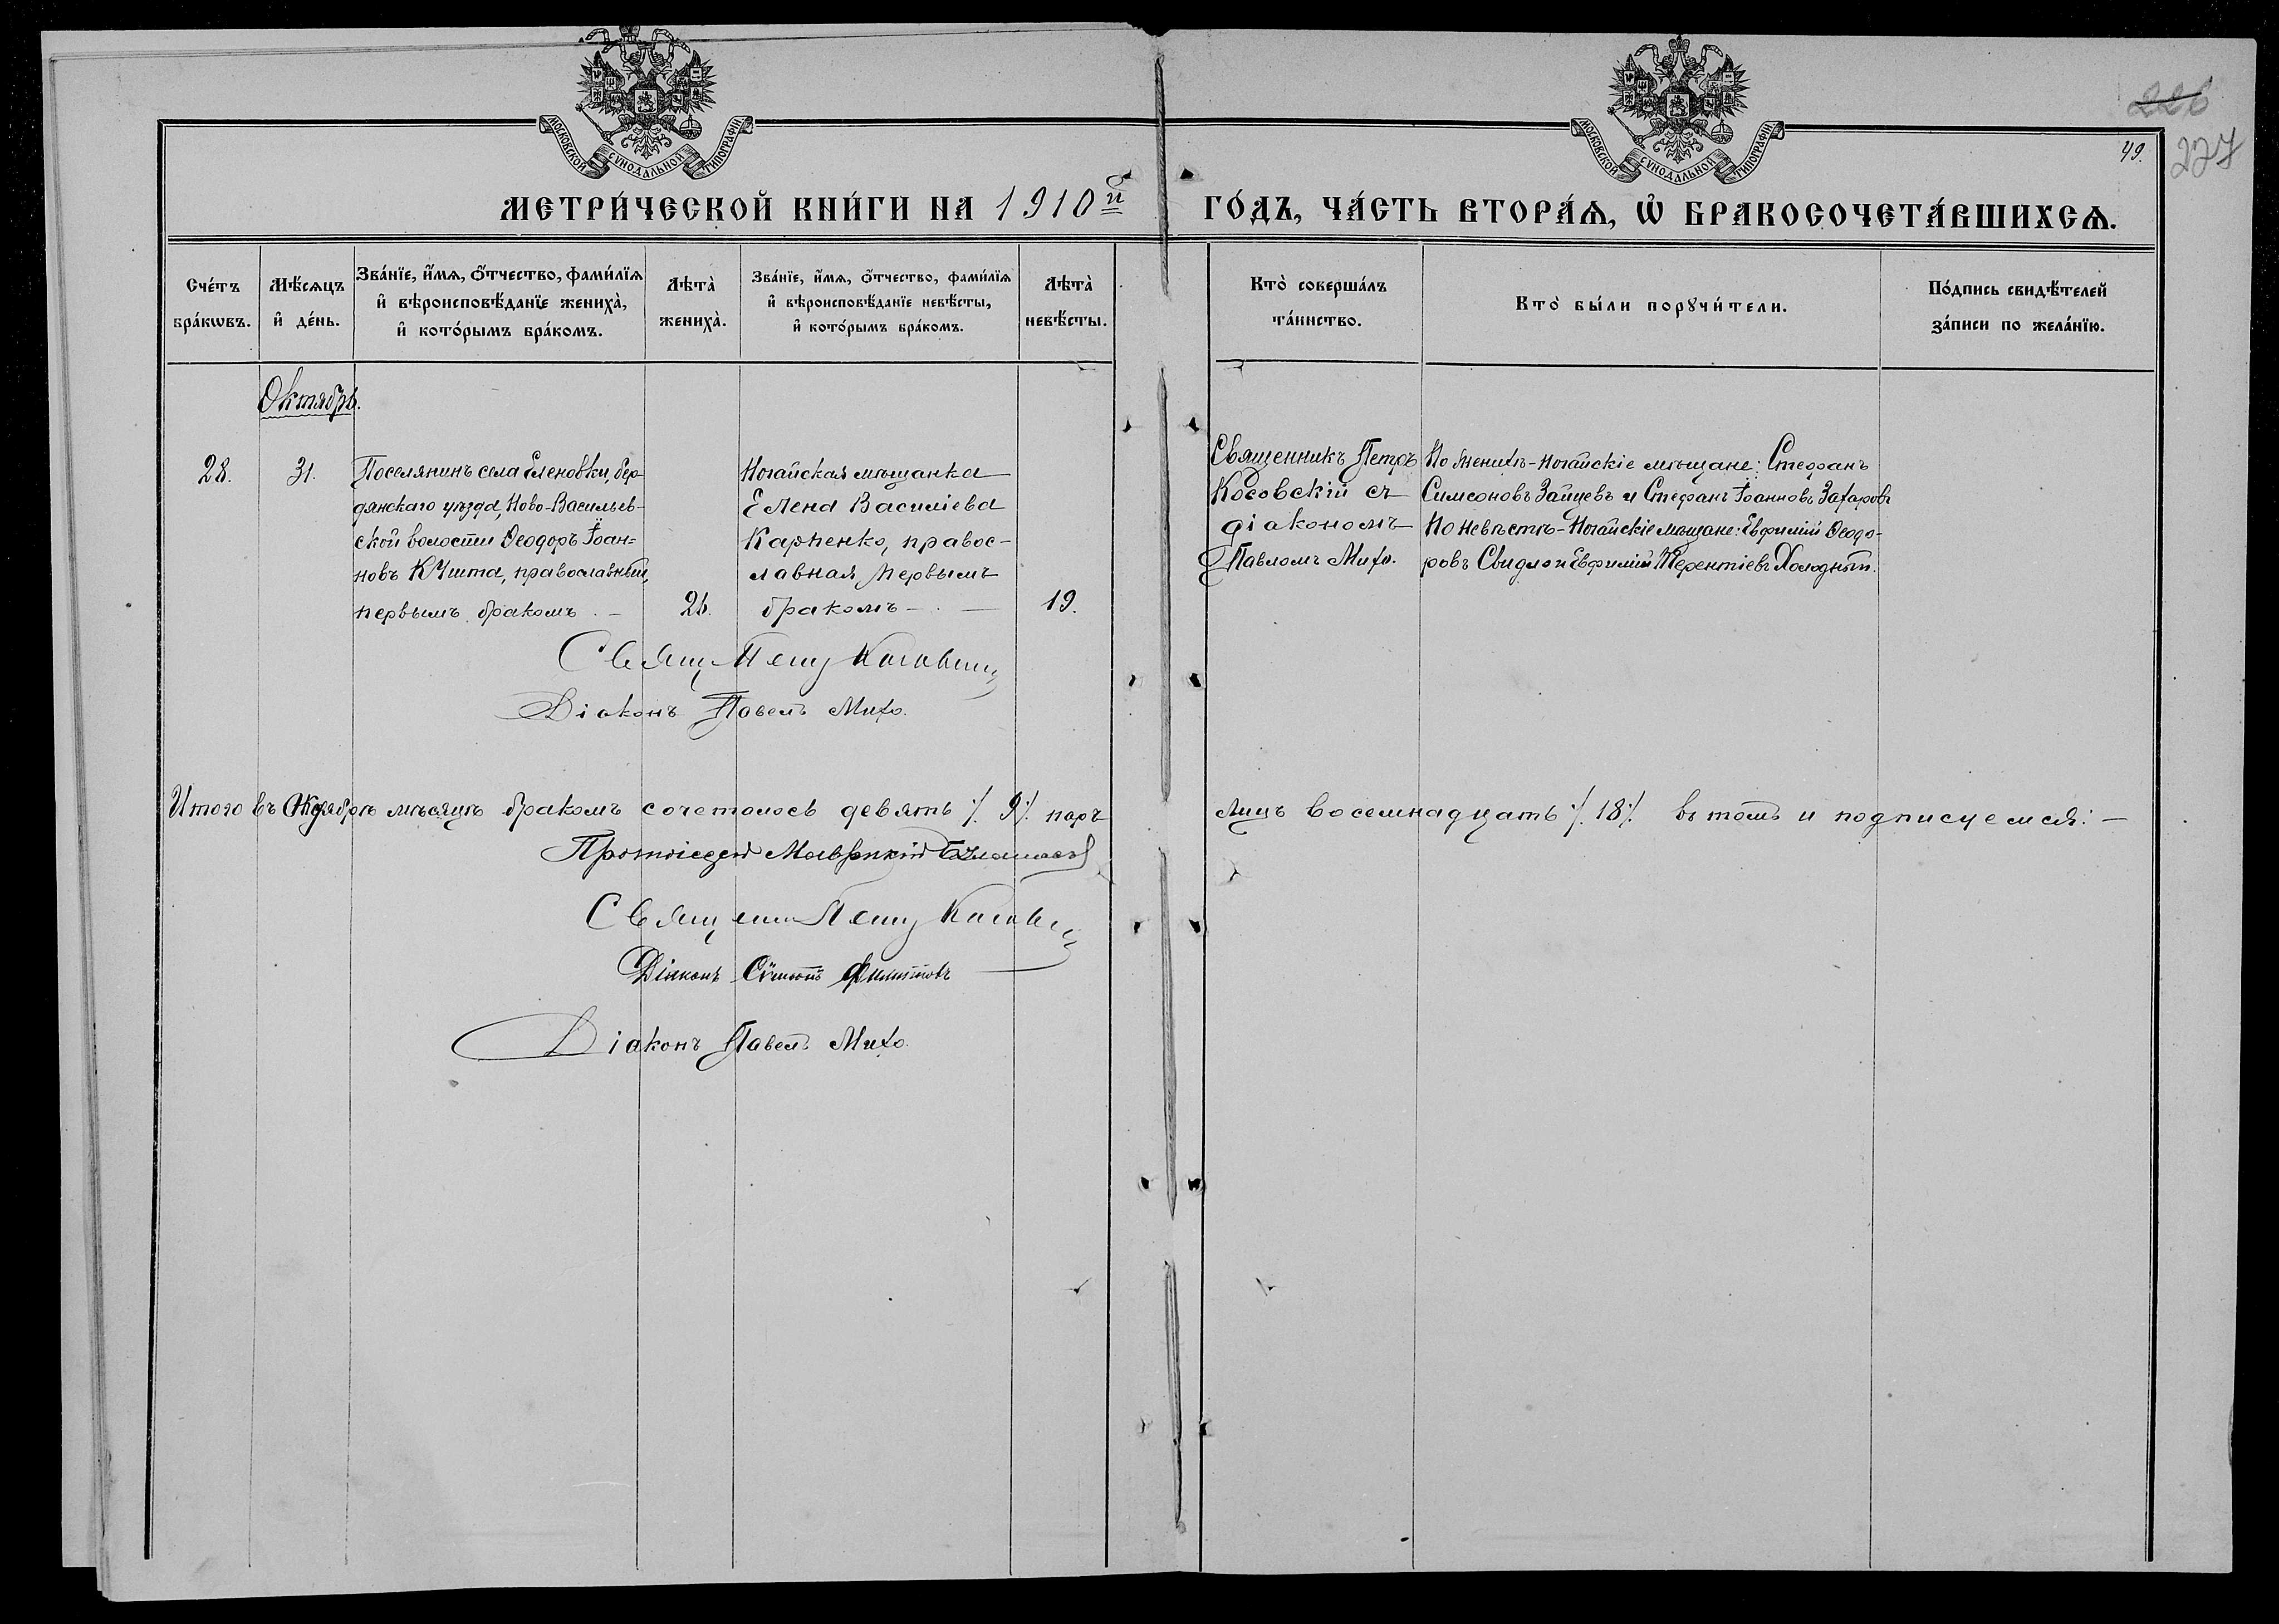 МОСКОВСКОЙ СѴНОДАЛЬНОЙ ТИПОГРАФІИ
МОСКОВСКОЙ СѴНОДАЛЬНОЙ ТИПОГРАФІИ
226
227
49.
МЕТРИ́ЧЕСКОЙ КНИ́ГИ НА 1910й ГО́ДЪ, ЧА́СТЬ ВТОРА́Ѧ, Ѽ БРАКОСОЧЕТА́ВШИХСѦ.
Сче́тъ
бра́кωвъ.
Мѣ́сѧцъ
и҆ де́нь.
Зва́нїе, и҆́мѧ, ѻ҆́тчество, фами́лїѧ
и҆ вѣроисповѣ́данїе жениха̀,
и҆ кото́рымъ бра́комъ.
Лѣта̀
жениха̀.
Зва́нїе, и҆́мѧ, ѻ҆́тчество, фами́лїѧ
и҆ вѣроисповѣ́данїе невѣ́сты,
и҆ кото́рымъ бра́комъ.
Лѣта̀
невѣ́сты.
Кто̀ соверша́лъ
та́инство.
Кто̀ бы́ли порꙋчи́тели.
По́дпись свидѣ́телей
за́писи по жела́нїю.
Октябрь.
28.
31.
Поселянинъ села Еленовки, бер-
дянскаго уѣзда, Ново-Васильев-
ской волости Ѳеодоръ Іоан=
новъ Кушта, православный,
первымъ бракомъ. —
26.
Ногайская мѣщанка
Елена Василіева
Карпенко, правос-
лавная, первымъ
бракомъ — . —
19.
Священникъ Петръ
Косовскій съ
діакономъ
Павломъ Михо.
По женихѣ - Ногайскіе мѣщане: Стефанъ
Симеоновъ Зайцевъ и Стефанъ Іоанновъ Захаровъ
По невѣстѣ - Ногайскіе мѣщане: Евфимій Ѳеодо-
ровъ Свидло и Евфимій Терентіевъ Холодный.
Свящ. Петръ Косовскій
Діаконъ Павелъ Михо.
Итого въ Октябрѣ мѣсяцѣ бракомъ сочеталось девять ⁒ 9 ⁒ паръ лицъ восемнадцать ⁒ 18 ⁒ въ томъ и подписуемся: —
Протоіерей
Священникъ Петръ Косовскій
Діаконъ Сѵмеонъ Филипповъ
Діаконъ Павелъ Михо.